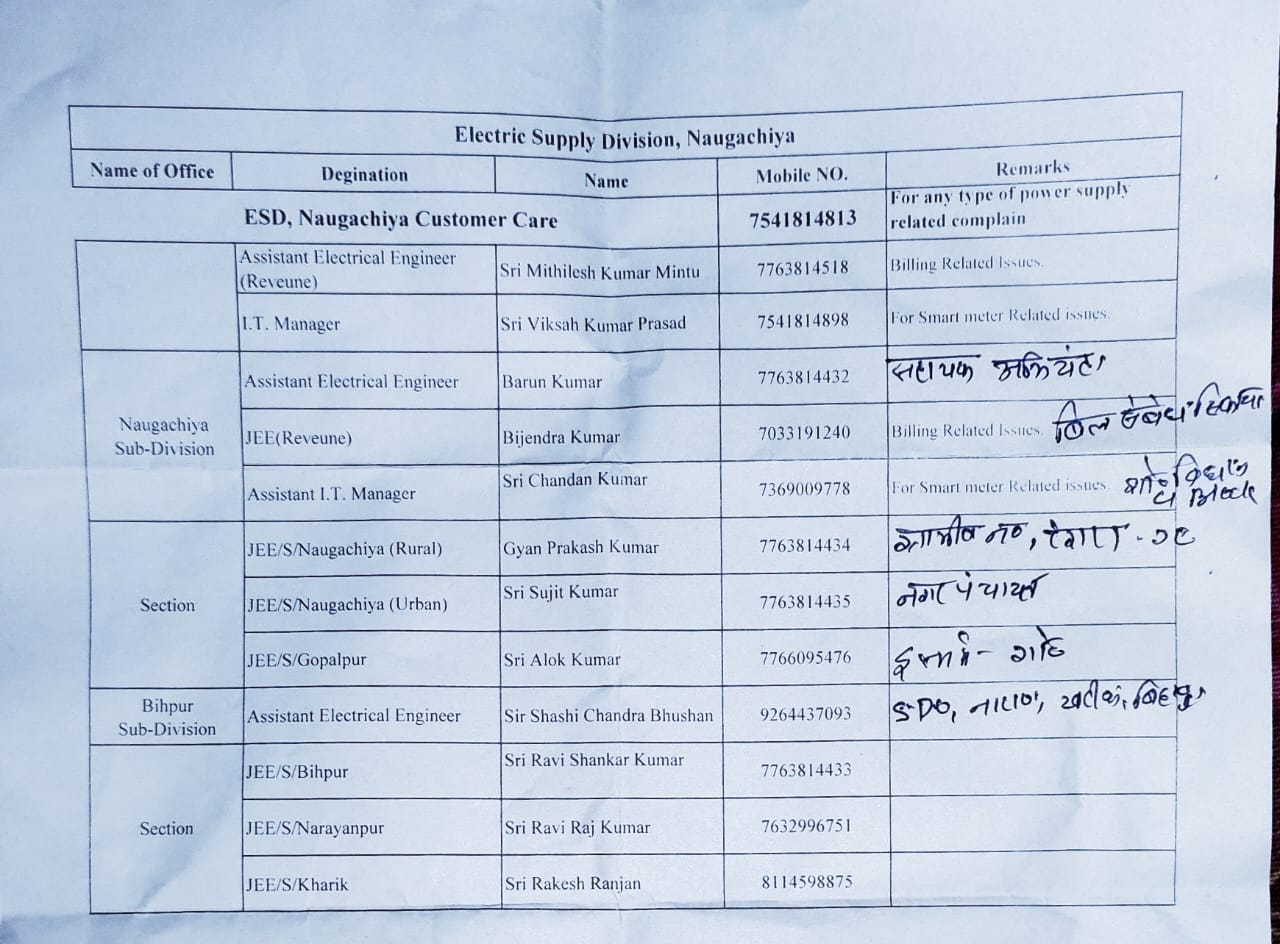 Electric Supply Division, Naugachiya
Name of Office Degination Name Mobile NO. Remarks
ESD, Naugachiya Customer Care 7541814813 For any type of power supply
related complain
Assistant Electrical Engineer
(Reveune) Sri Mithilesh Kumar Mintu 7763814518 Billing Related Issues.
I.T. Manager Sri Viksah Kumar Prasad 7541814898 For Smart meter Related issues.
Naugachiya
Sub-Division
Assistant Electrical Engineer Barun Kumar 7763814432 सहायक अभियंता
JEE(Reveune) Bijendra Kumar 7033191240 Billing Related Issues. बिल
Assistant I.T. Manager Sri Chandan Kumar 7369009778 For Smart meter Related issues.
Block
Section
JEE/S/Naugachiya (Rural) Gyan Prakash Kumar 7763814434
JEE/S/Naugachiya (Urban) Sri Sujit Kumar 7763814435 नगर पंचायत
JEE/S/Gopalpur Sri Alok Kumar 7766095476
Bihpur
Sub-Division
Assistant Electrical Engineer Sir Shashi Chandra Bhushan 9264437093 SDO, खरीक, बिहपुर
Section
JEE/S/Bihpur Sri Ravi Shankar Kumar 7763814433
JEE/S/Narayanpur Sri Ravi Raj Kumar 7632996751
JEE/S/Kharik Sri Rakesh Ranjan 8114598875